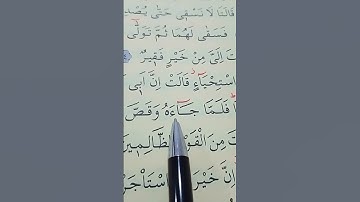 قَالَتَا لَا نَسْقٖي حَتّٰى يُصْدِ
فَسَقٰى لَهُمَا ثُمَّ تَوَلّٰٓى
تَ اِلَيَّ مِنْ خَيْرٍ فَقٖيرٌ
اسْتِحْيَٓاءٍ قَالَتْ اِنَّ اَبٖي
فَلَمَّا جَٓاءَهُ وَقَصَّ
تَ مِنَ الْقَوْمِ الظَّالِمٖينَ
اِنَّ خَيْرَ اسْتَأْجَرْ